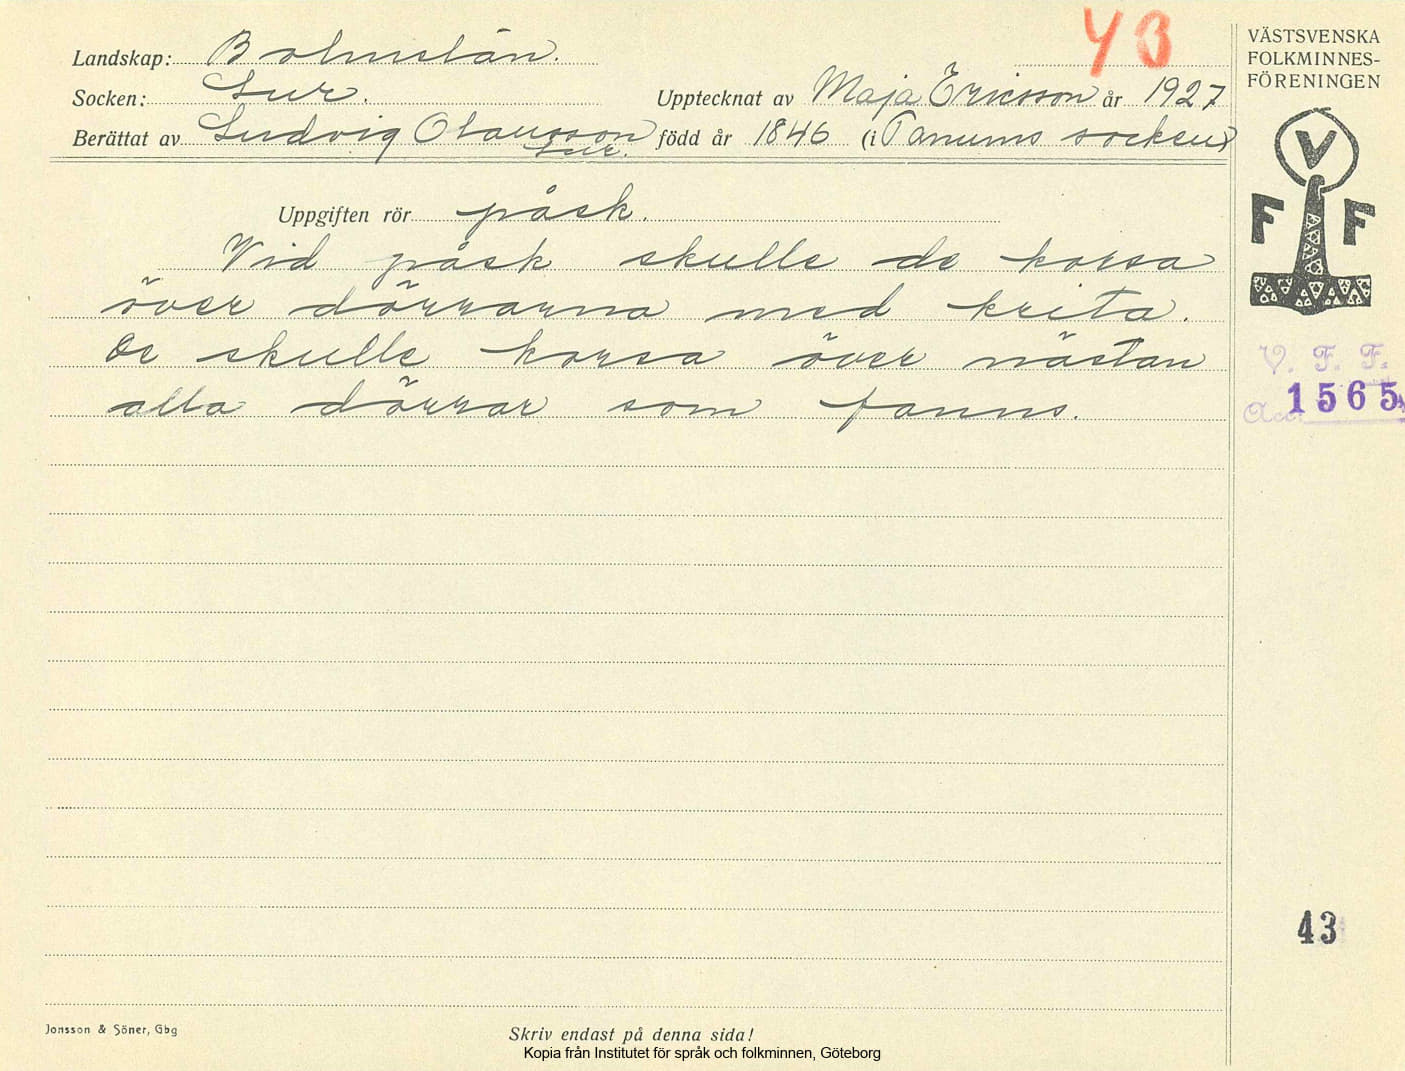 YB
Landskap: Bohuslän.
Socken: Lur.
Upptecknat av Maja Ericsson år 1927
Berättat av Ludvig Olausson född år 1846 (i Tanums socken)
Lur.
Uppgiften rör påsk.
Vid påsk skulle de korsa
över dörrarna med krita.
De skulle korsa över nästan
alla dörrar som fanns.
VÄSTSVENSKA
FOLKMINNES-
FÖRENINGEN
V
F F
V. F. F.
Acc. 1565
43
Jonsson & Söner, Gbg
Skriv endast på denna sida!
Kopia från Institutet för språk och folkminnen, Göteborg